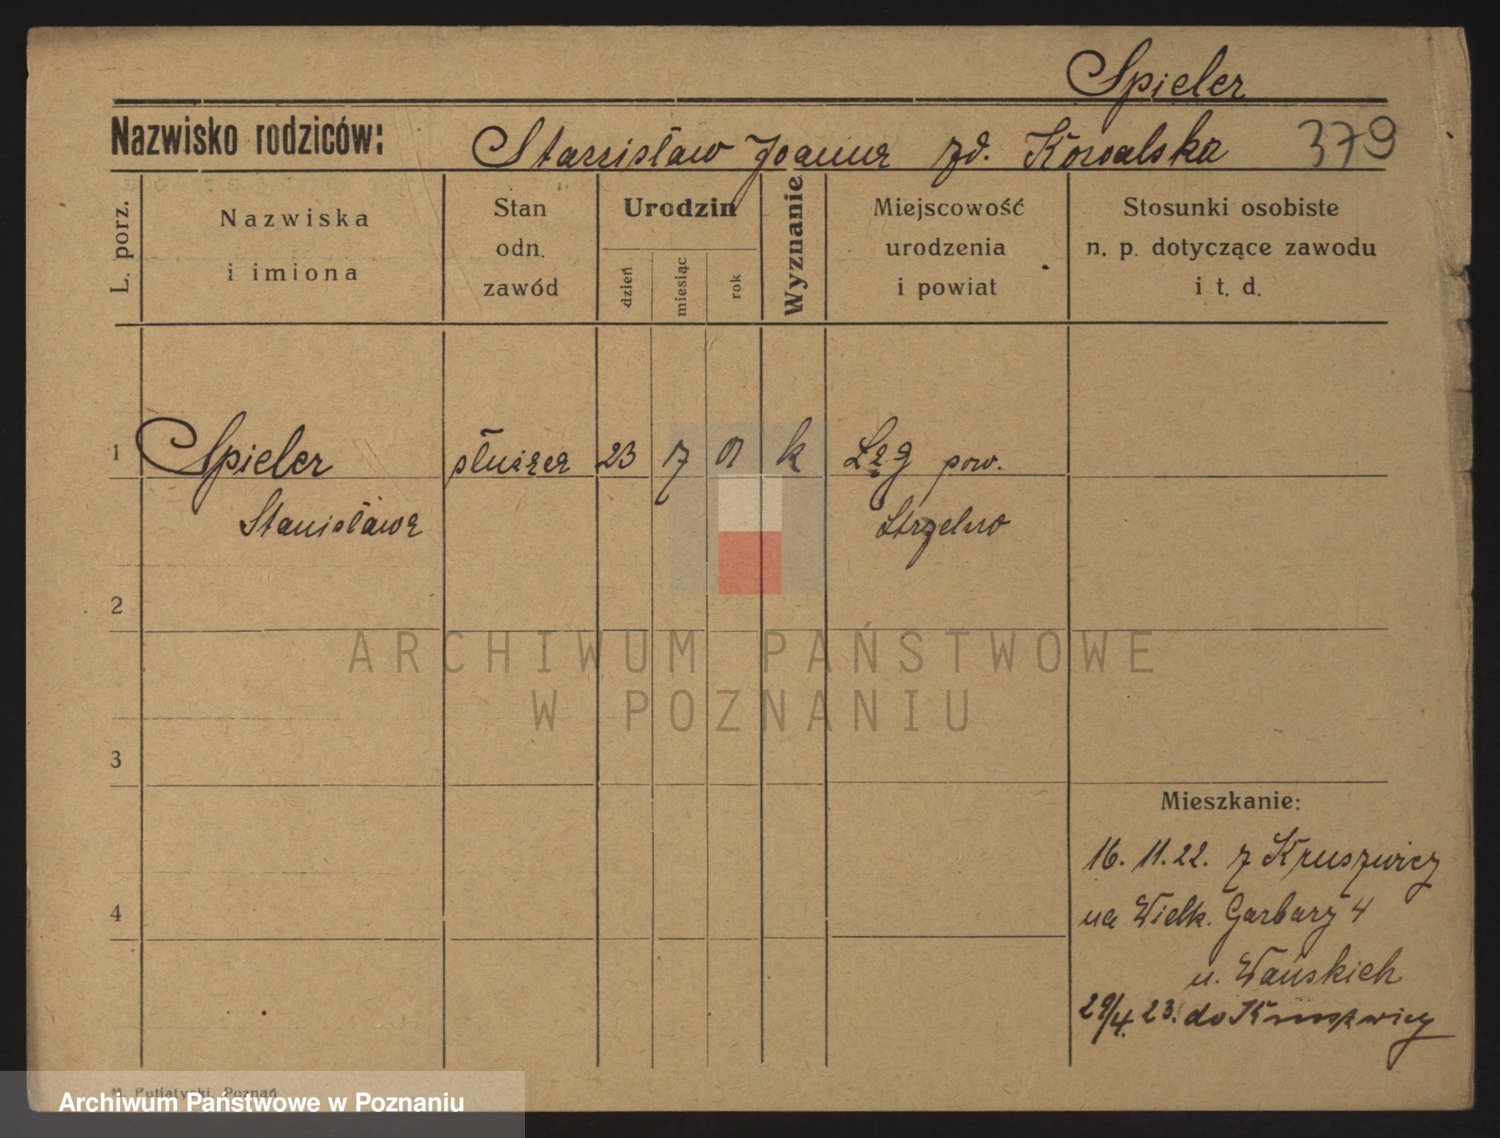 Spieler
Nazwisko rodziców: Stanisław Joanna zd. Kowalska 379
L. porz.
Nazwiska i imiona
Stan odn. zawód
Urodzin
dzień
miesiąc
rok
Wyznanie
Miejscowość urodzenia i powiat
Stosunki osobiste n. p. dotyczące zawodu i t. d.
1 Spieler służąca 23 7 01 k Łąg pow.
Stanisława Strzelno
2
ARCHIWUM PAŃSTWOWE
W POZNANIU
3
Mieszkanie:
16. 11. 22. z Kruszwicy
4 na Wielk. Garbary 4
u. Wańskich
29/4. 23. do Kruszwicy
M. Putiatycki, Poznań
Archiwum Państwowe w Poznaniu